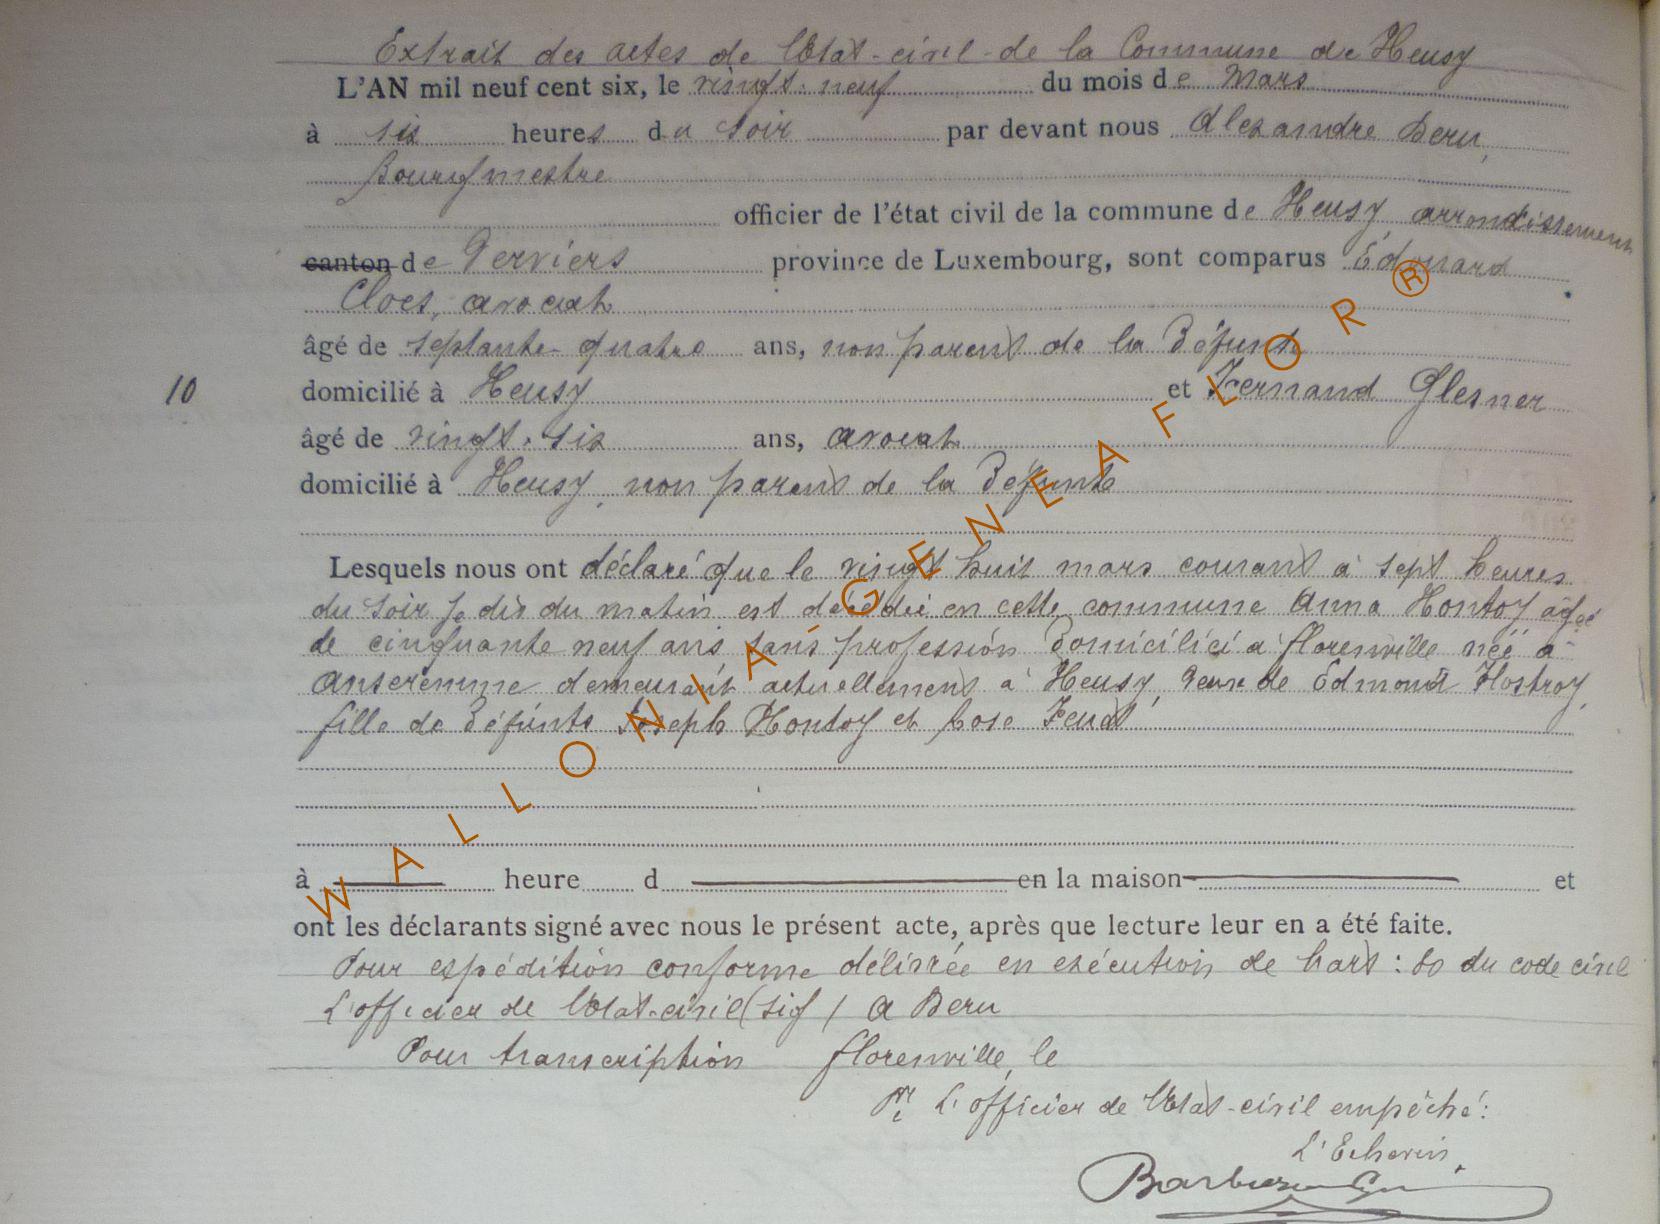 Extrait des actes de l'Etat-civil de la Commune de Heusy
L'AN mil neuf cent six, le vingt-neuf du mois de Mars
à six heures du soir par devant nous Alexandre Deru,
Bourgmestre
officier de l'état civil de la commune de Heusy, arrondissement
canton de Verviers province de Luxembourg, sont comparus Edouard
Cloes, avocat
âgé de septante-quatre ans, non parent de la Défunte
10 domicilié à Heusy et Fernand Glesner
âgé de vingt-six ans, avocat
domicilié à Heusy, non parent de la Défunte
Lesquels nous ont déclaré que le vingt huit mars courant à sept heures
du soir je dis du matin est décédée en cette commune Anna Hontoy âgée
de cinquante neuf ans sans profession Domiciliée à florenville née à
Anseremme demeurant actuellement à Heusy, Veuve de Edmond
fille de Défunts Joseph Hontoy et Rose
à heure d en la maison et
ont les déclarants signé avec nous le présent acte, après que lecture leur en a été faite.
Pour expédition conforme délivrée en exécution de l'art : 80 du code civil
L'officier de l'Etat-civil (sig) A Deru
Pour transcription florenville, le
Pr L'officier de l'Etat-civil empêché :
L'Echevin.
WALLONIA-GENEAFLOR®